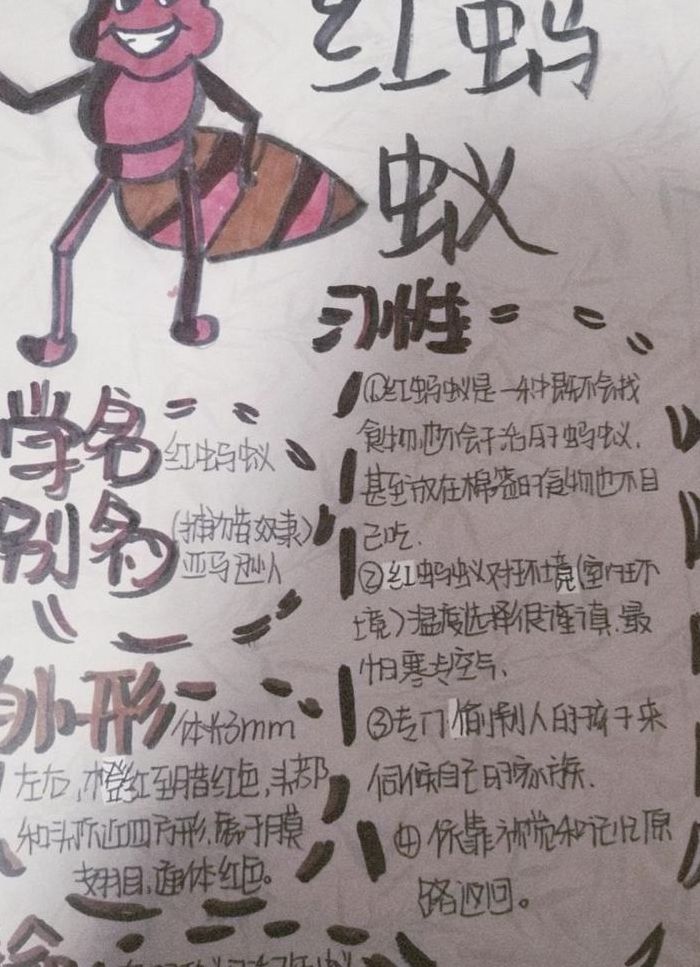 红蚂
蚁
学名
红蚂蚁
别名
(捕猎奴隶)
亚马逊人
外形
体长3mm
左右,橙红至暗红色,头部
和头顶近四方形,属于膜
翅目,通体红色。
习性
①红蚂蚁是一种既不会找
食物,也不会干活的蚂蚁,
甚至放在嘴边的食物也不自
己吃.
②红蚂蚁对环境(室内环
境)温度选择很谨慎,最
怕寒冷空气、
③专门偷别人的孩子来
伺候自己的家族.
④依靠视觉和记忆原
路返回。